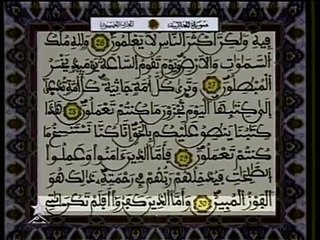 سورة الجاثية
فيه ولكن أكثر الناس لا يعلمون 26 ولله ملك
السموات والارض ويوم تقوم الساعة يومئذ يخسر
المبطلون 27 وترى كل أمة جاثية كل أمة تدعى
إلى كتابها اليوم تجزون ما كنتم تعملون 28 هذا
كتبنا ينطق عليكم بالحق إنا كنا نستنسخ ما
كنتم تعملون 29 فأما الذين ءامنوا وعملوا
الصلحت فيدخلهم ربهم في رحمته ذلك هو
الفوز المبين 30 وأما الذين كفروا أفلم تكن ءايتي